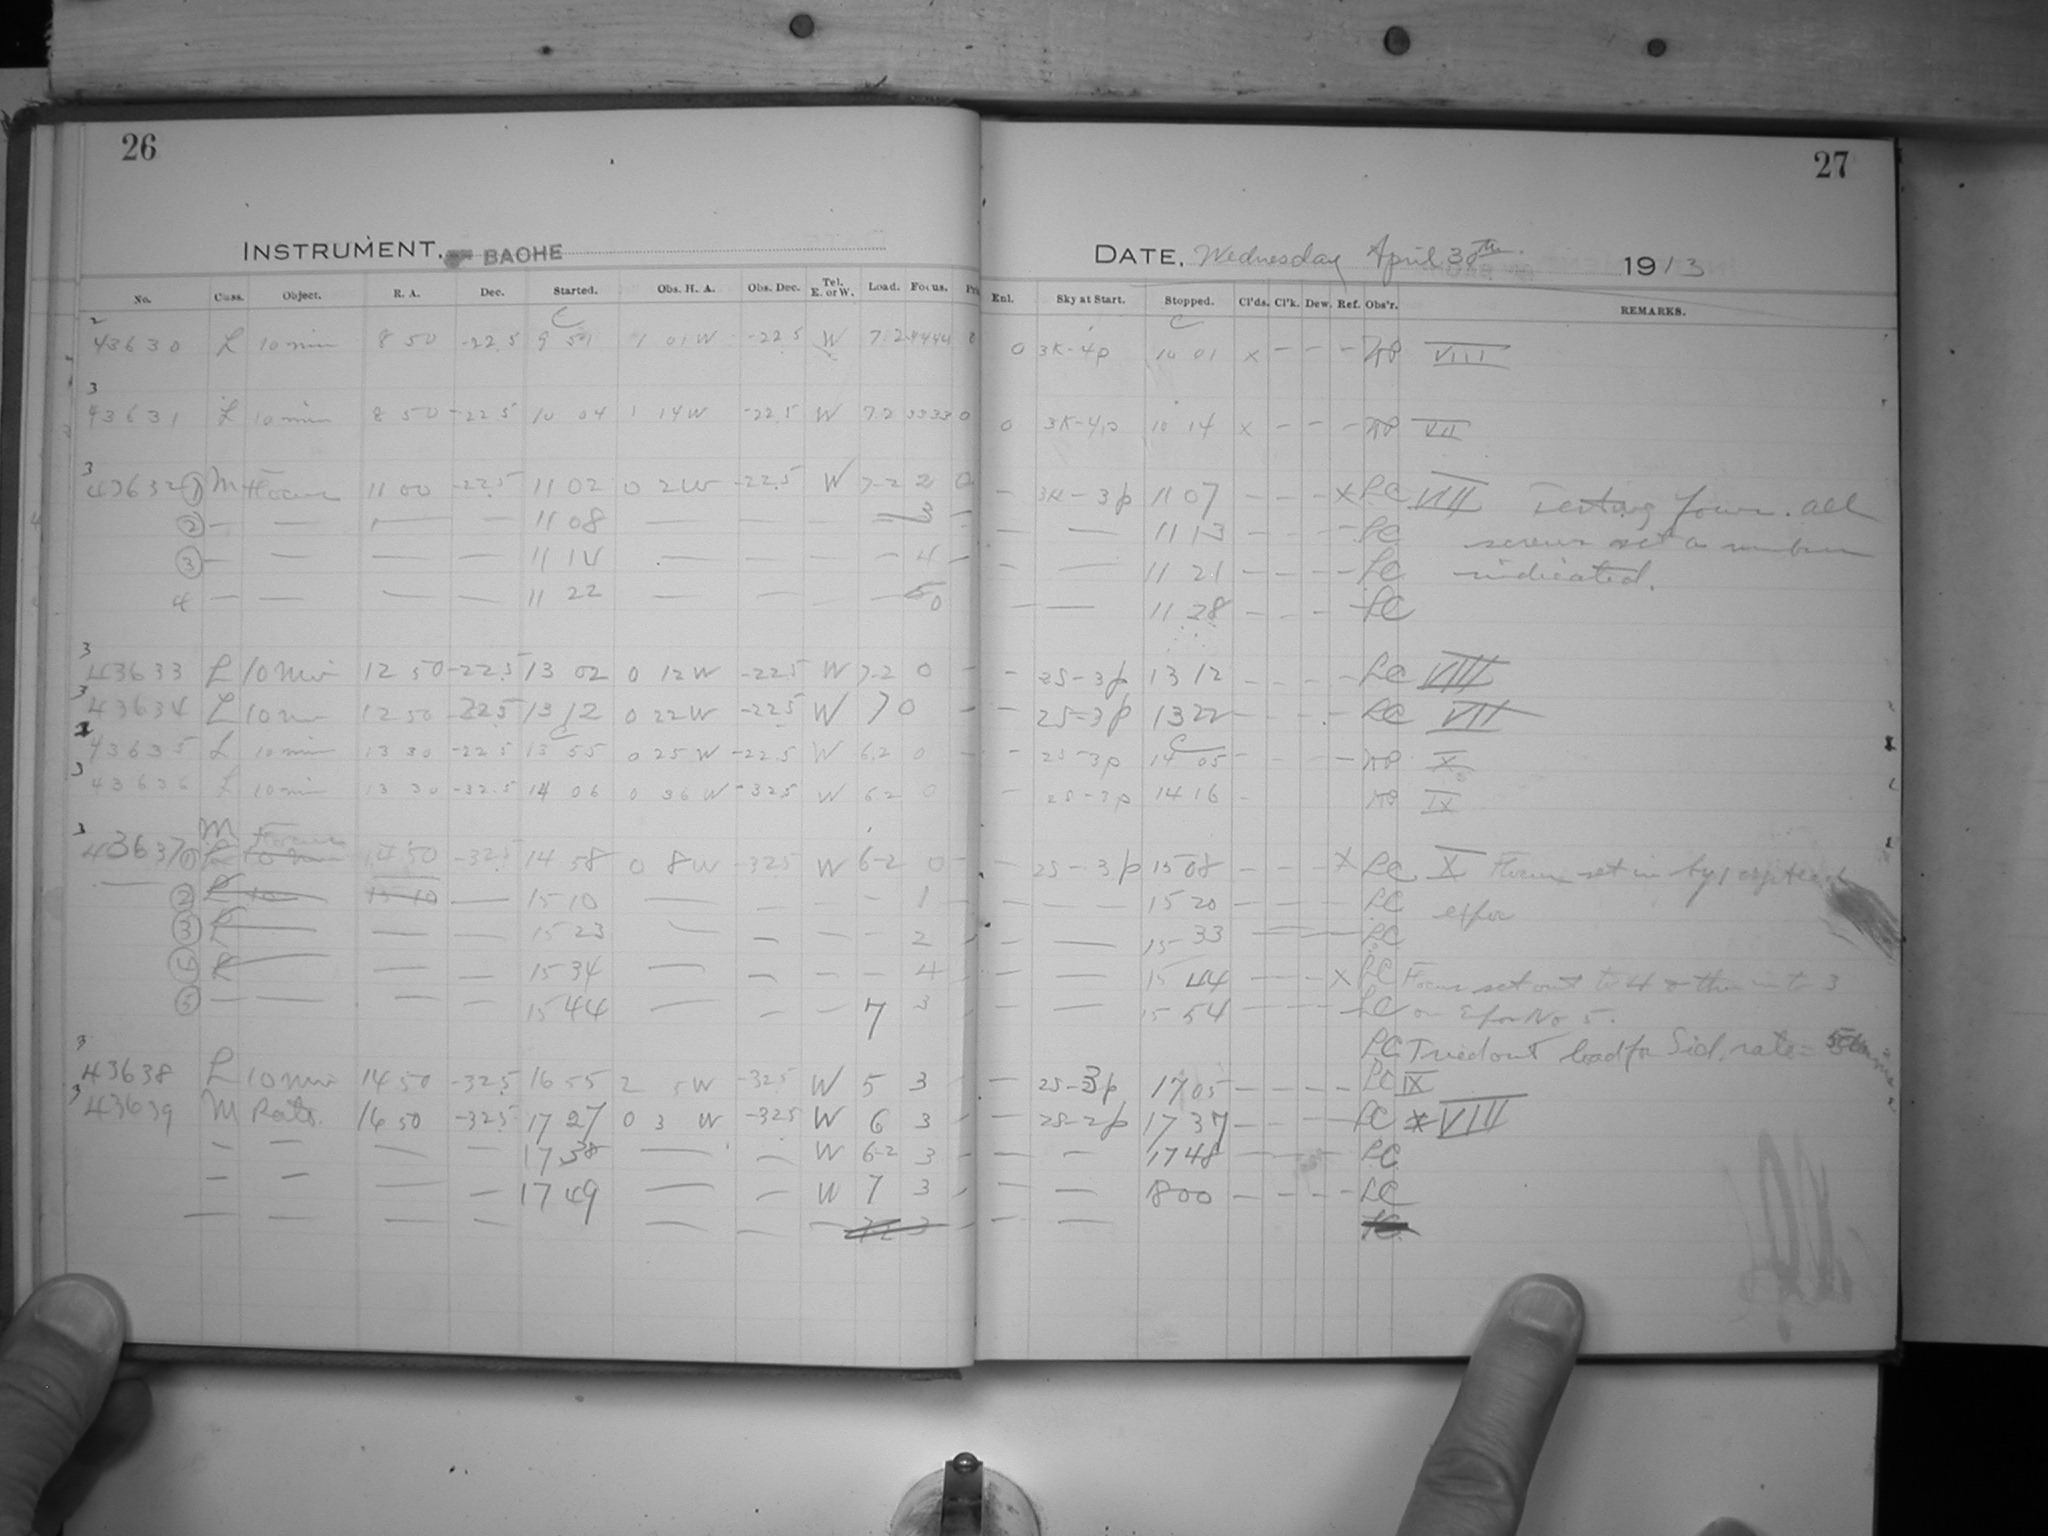 26
INSTRUMENT. BACHE
No. Class. Object. R. A. Dec. Started. Obs. H. A. Obs. Dec. Tel. E. or W. Load. Focus.
2
43630 L 10 min 8 50 -22.5 9 51 1 01 W -22.5 W 7.2 4444
3
43631 L 10 min 8 50 -22.5 10 04 1 14 W -22.5 W 7.2 3333 0
3
43632 ① M Focus 11 00 -22.5 11 02 0 2 W -22.5 W 7-2 2 0
② — — — — 11 08 — — — — 3 —
③ — — — — 11 14 — — — — 4 —
4 — — — — 11 22 — — — — 5 0
3
43633 L 10 min 12 50 -22.5 13 02 0 12 W -22.5 W 7-2 0 -
3
43634 L 10 min 12 50 -22.5 13 12 0 22 W -22.5 W 7 0 -
43635 L 10 min 13 30 -22.5 13 55 0 25 W -22.5 W 6.2 0 -
3
43636 L 10 min 13 30 -32.5 14 06 0 36 W -32.5 W 6.2 0
M Focus
3
43637 ① L 10 min 14 50 -32.5 14 58 0 8 W -32.5 W 6-2 0 -
② L 10 15 10 — 15 10 — — — — 1 -
③ L — — — 15 23 — — — — 2 -
④ L — — — 15 34 — — — — 4 -
⑤ — — — — 15 44 — — — 7 3 -
3
43638 L 10 min 14 50 -32.5 16 55 2 5 W -32.5 W 5 3 -
3
43639 M Rate. 16 50 -32.5 17 27 0 3 W -32.5 W 6 3 -
— — — — 17 38 — — W 6-2 3 -
— — — — 17 49 — — W 7 3 -
27
DATE. Wednesday April 30th. 1913
Enl. Sky at Start. Stopped. Cl'ds. Cl'k. Dew. Ref. Obs'r. REMARKS.
0 3K-4p 10 01 x - - - VIII
0 3K-4p 10 14 x - - - VII
- 3K-3p 11 07 - - - X LC VIII Testing focus. all
— — 11 13 - - - - LC screws set a number
- — 11 21 - - - - LC indicated.
— — 11 28 - - - - LC
- 2S-3p 13 12 - - - - LC VIII
- 2S-3p 13 22 - - - - LC VII
- 2S-3p 14 05 - X
- 2S-3p 14 16 - IX
- 2S-3p 15 08 - - - X LC X Focus set in by 1
- - - 15 20 - - - - LC expos
- — 15 33 LC
- — 15 44 - - - X LC Focus set out to 4 & then in to 3
- — 15 54 - - - - LC on Expos No 5.
LC Tried out load for Sid. rate =
- 2S-3p 17 05 - - - - LC IX
- 2S-2p 17 37 - - - - LC x VIII
- — 17 48 LC
- — 1800 - - - - LC